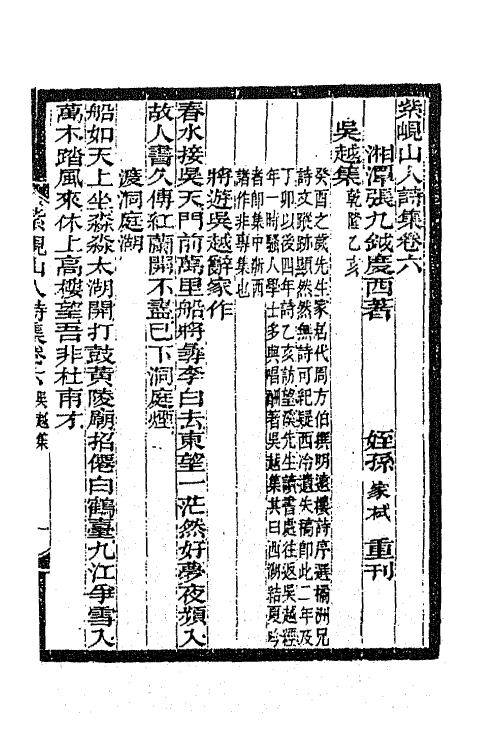 紫峴山人詩集卷六
湘潭張九鉞度西著　姪孫家栻重刊
吳越集乾隆乙亥
癸酉之歲先生家居代周方伯撰明遠樓詩序選橘洲兄
詩文蹤跡顯然無詩可紀疑西冷遺失稿卽此二年及
丁卯以後四年詩乙亥訪望溪先生讀書處往返吳越經
年一時騷人學士多與唱酬著吳越集其曰西湖結夏吟
者卽集中浙西
諸作非專集也
將遊吳越辭家作
春水接吳天門前萬里船將尋李白去東望一茫然好夢夜頻入
故人書久傳紅蘭開不盡已下洞庭煙
渡洞庭湖
船如天上坐淼淼太湖開打鼓黃陵廟招僊白鶴臺九江爭雪入
萬木踏風來休上高樓望吾非杜甫才
紫峴山人詩集卷六 吳越集 一